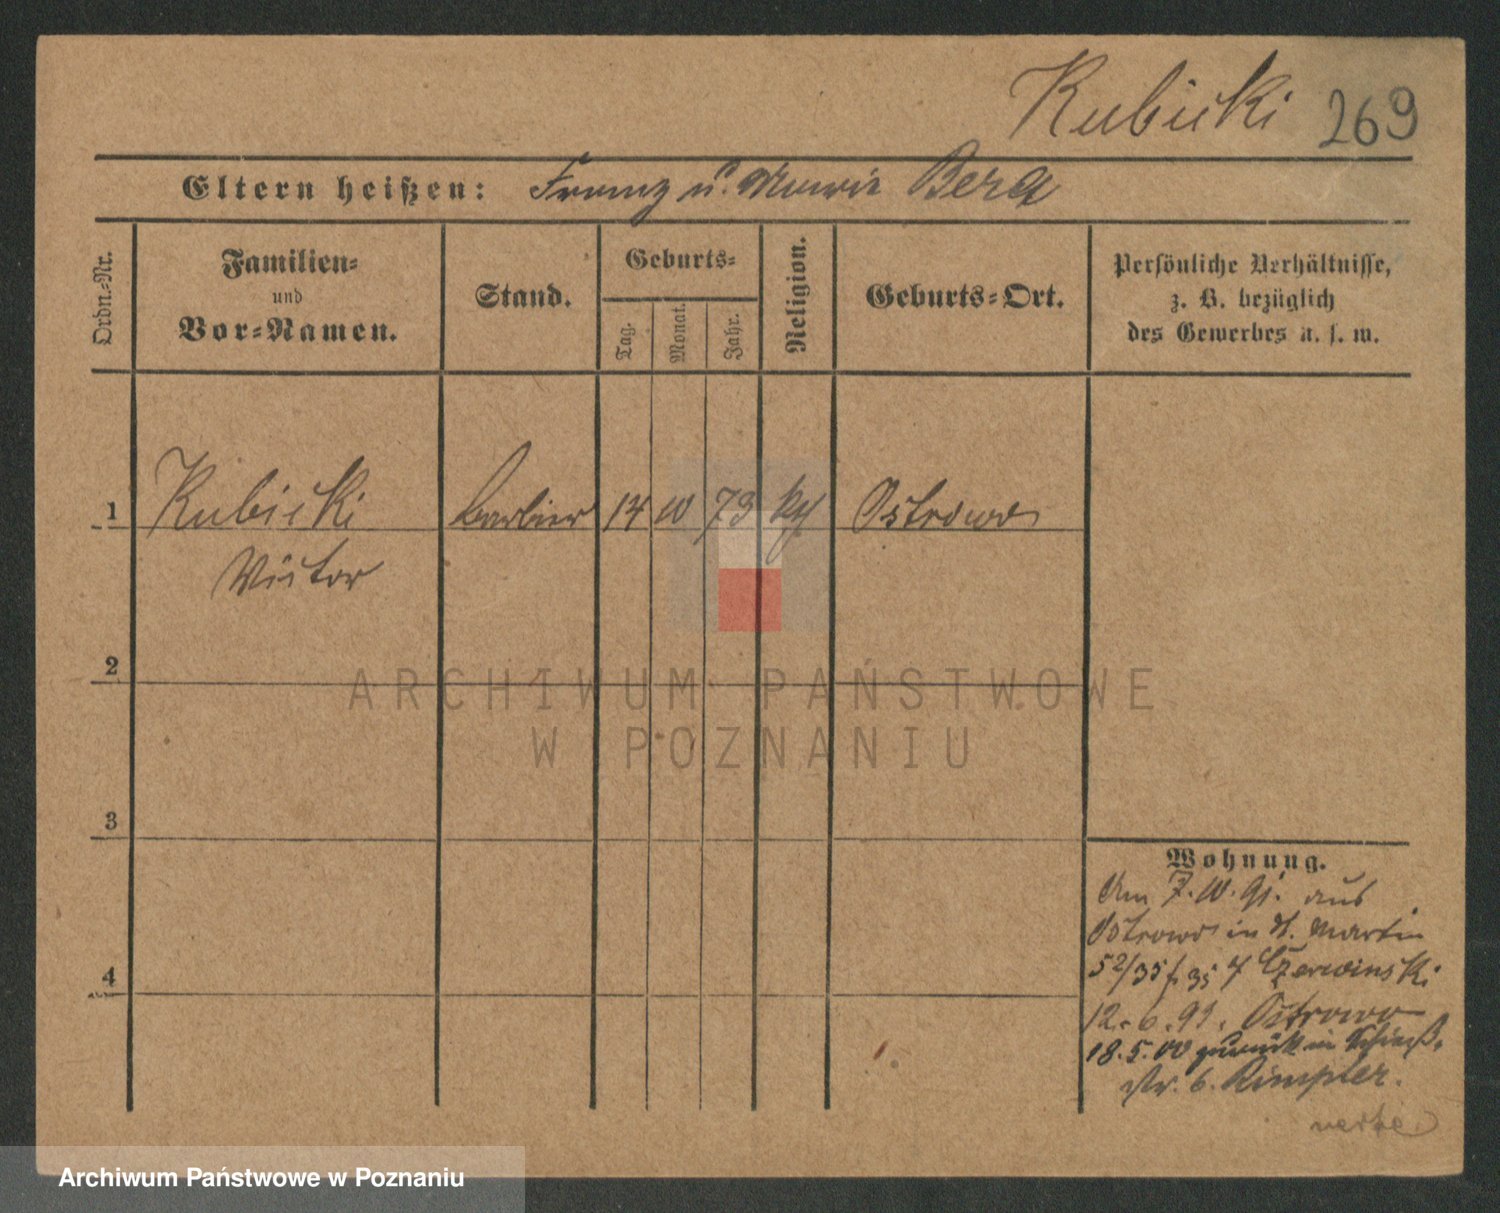 Kubicki 269
Eltern heißen: Franz u. Marie Berg
Ordn.-Nr.
Familien-
und
Vor-Namen.
Stand.
Geburts-
Tag.
Monat.
Jahr.
Religion.
Geburts-Ort.
Persönliche Verhältnisse,
z. B. bezüglich
des Gewerbes u. s. w.
1 Kubicki Barbier 14 10 73 Ostrowo
Victor
2
3
4
Wohnung.
Am 7. 10. 91. aus
Ostrowo in St. Martin
52/35 Czerwinski
12. 6. 99. Ostrowo
18. 5. 00 zurück in Schieß-
Str. 6.
ARCHIWUM PAŃSTWOWE
W POZNANIU
Archiwum Państwowe w Poznaniu